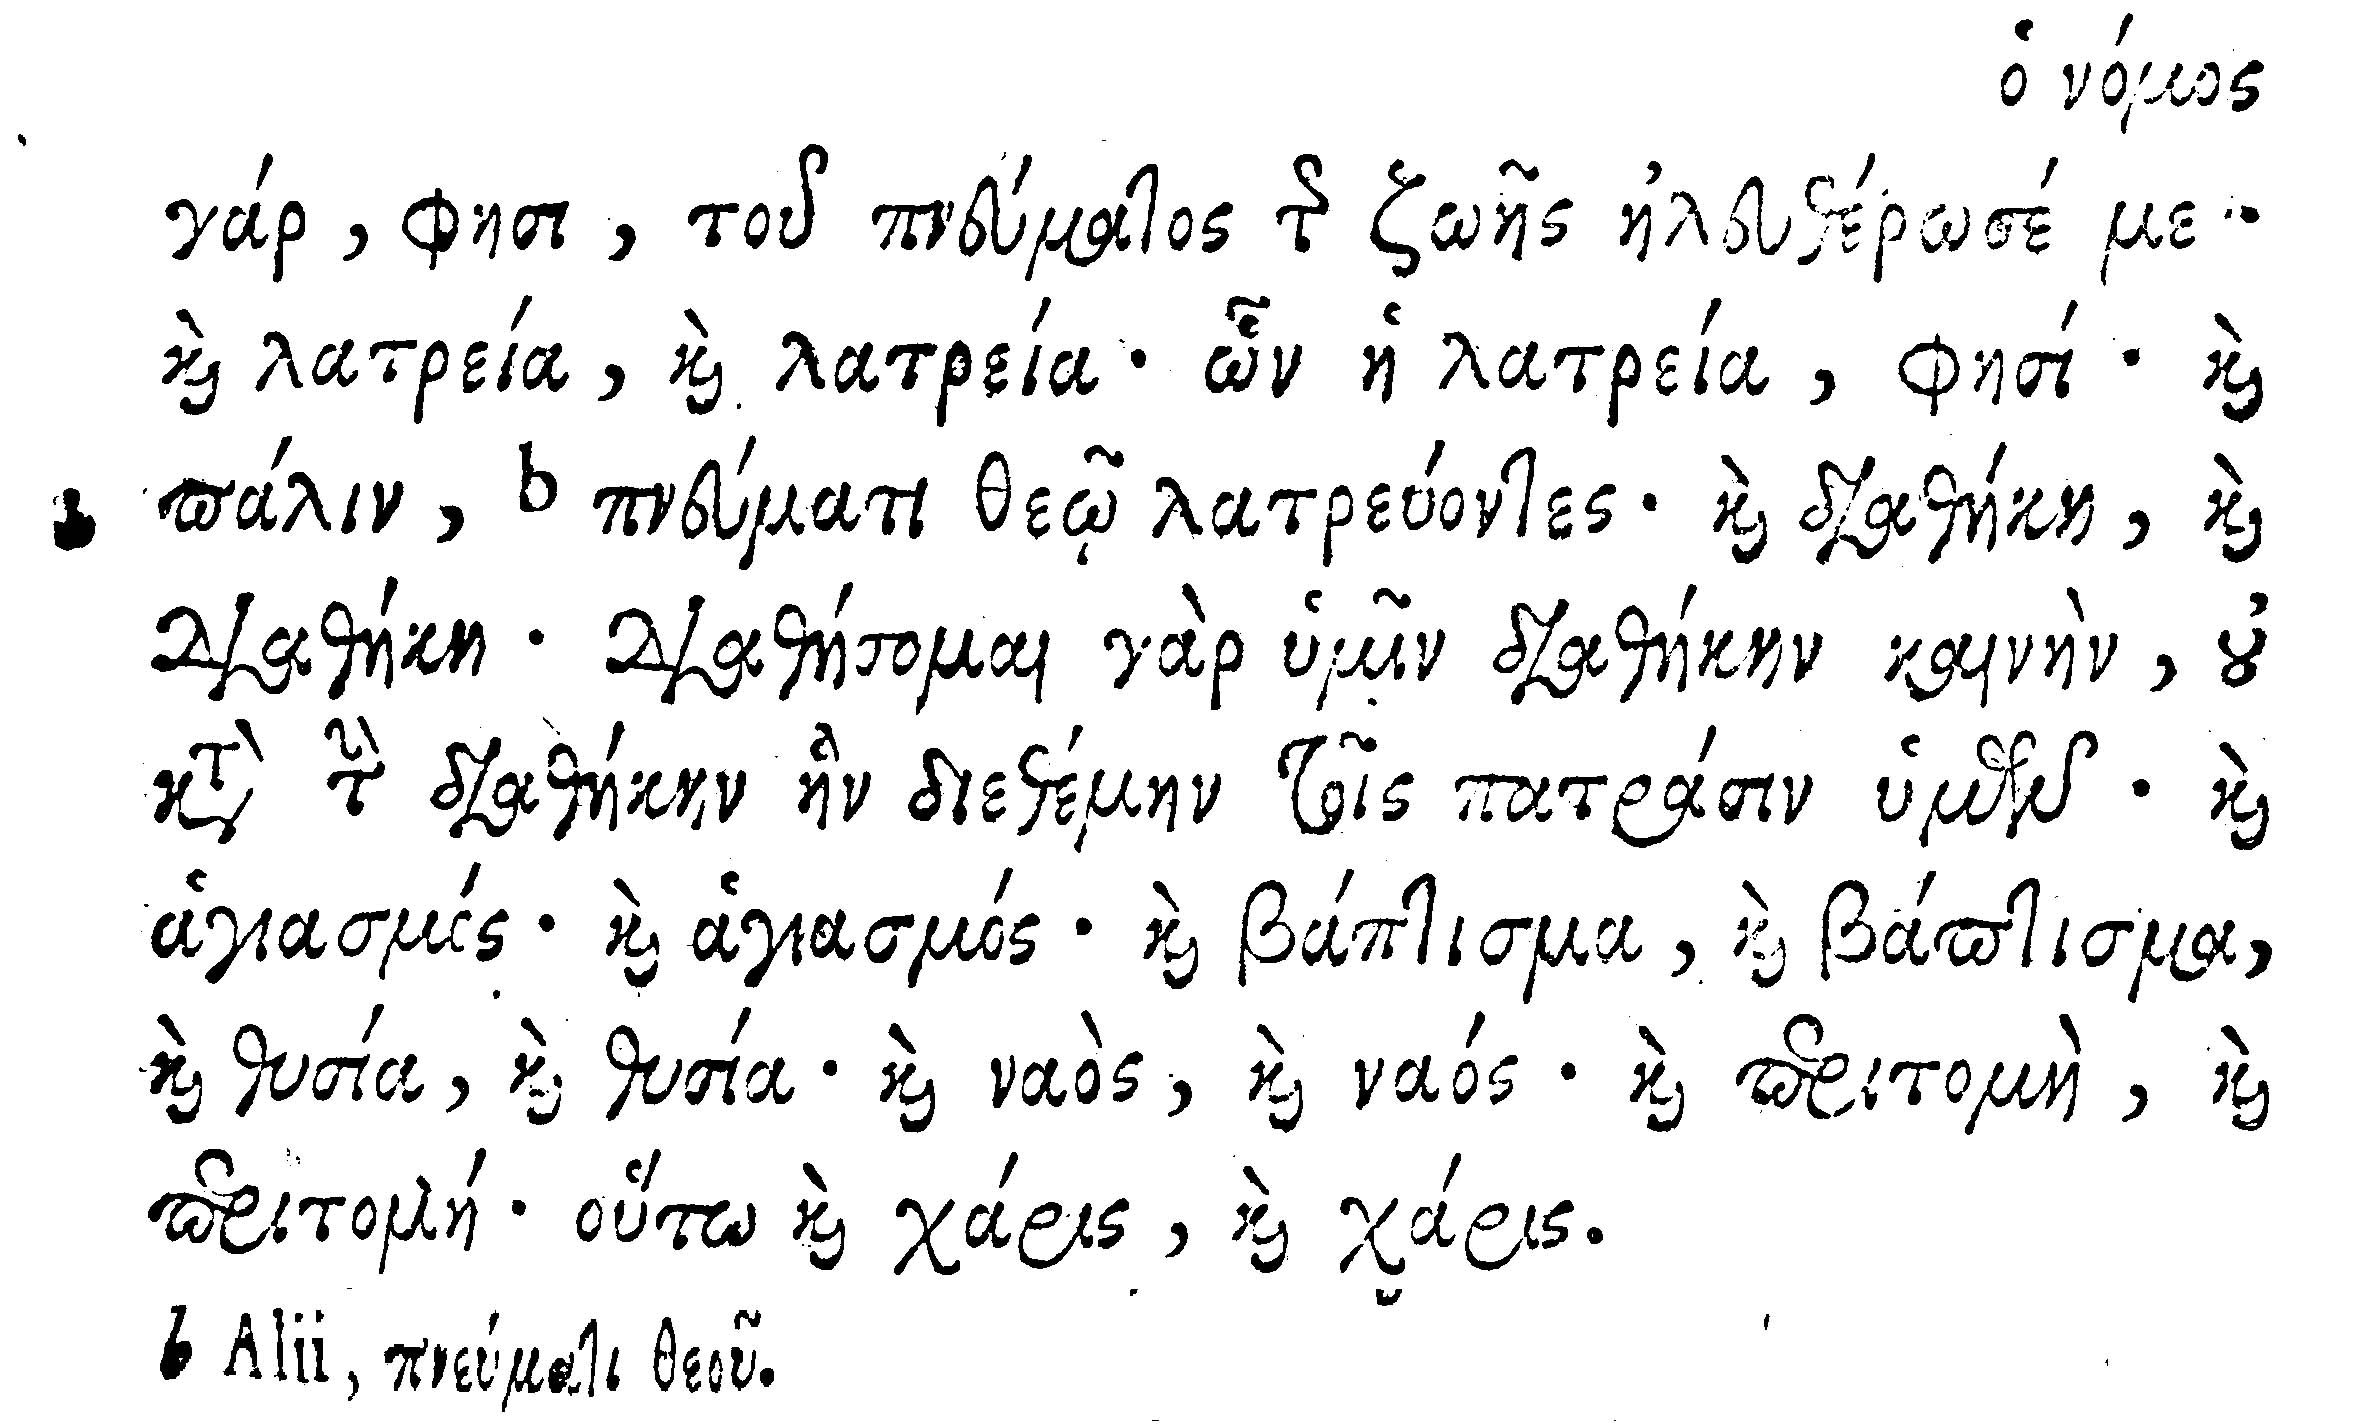 ὁ νόμος
γάρ, φησι, τοῦ πνεύματος τῆς ζωῆς ἠλευθέρωσέ με·
καὶ λατρεία, καὶ λατρεία· ὧν ἡ λατρεία, φησί· καὶ
πάλιν, b πνεύματι θεῷ λατρεύοντες· καὶ διαθήκη, καὶ
διαθήκη· διαθήσομαι γὰρ ὑμῖν διαθήκην καινὴν, οὐ
κατὰ τὴν διαθήκην ἣν διεθέμην τοῖς πατράσιν ὑμῶν· καὶ
ἁγιασμός· καὶ ἁγιασμός· καὶ βάπτισμα, καὶ βάπτισμα,
καὶ θυσία, καὶ θυσία· καὶ ναὸς, καὶ ναός· καὶ περιτομὴ, καὶ
περιτομή· οὕτω καὶ χάρις, καὶ χάρις.
b Alii, πνεύματι θεοῦ.